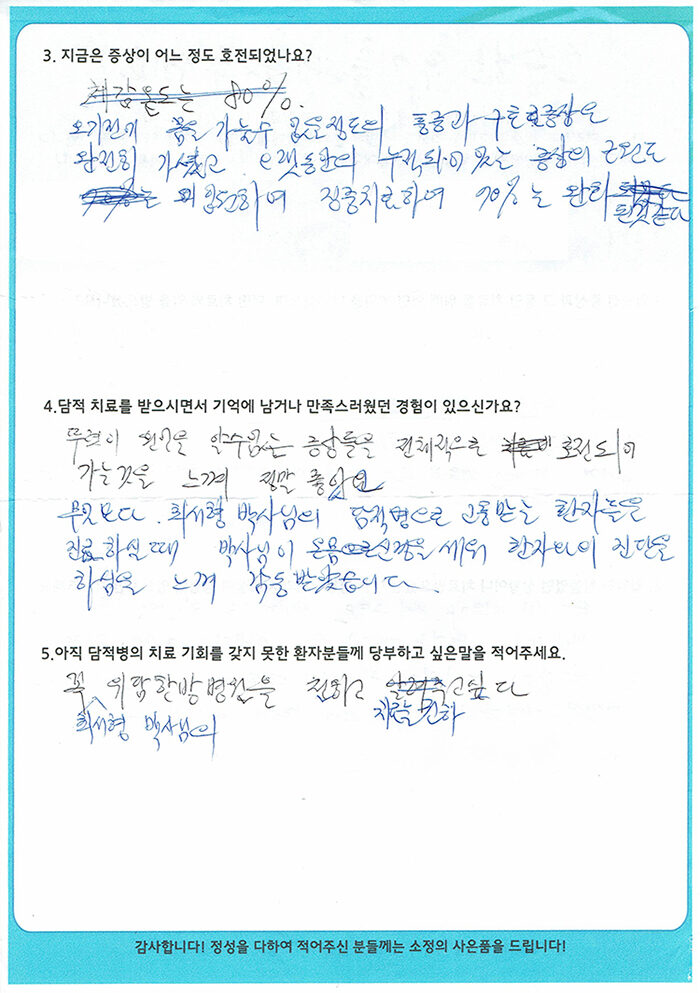 3. 지금은 증상이 어느 정도 호전되었나요?
체감온도는 80%.
오기전에 몸을 가눌수 없을정도의 통증과 구토 증상은
완전히 가셨고 오랫동안의 누적되어 있는 증상의 근원도
위 집중치료하여 70%는 완화
된것같다
4.담적 치료를 받으시면서 기억에 남거나 만족스러웠던 경험이 있으신가요?
뚜렷이 원인을 알수없는 증상들을 전체적으로 호전되어
가는것을 느껴 정말 좋았고
무엇보다. 최서형 박사님의 담적병으로 고통받는 환자들을
진료 하실때 박사님이 온몸 신경을 세워 환자와의 진단을
하심을 느껴 감동 받았습니다
5.아직 담적병의 치료 기회를 갖지 못한 환자분들께 당부하고 싶은말을 적어주세요.
꼭 위담한방병원을 접하고 알려주고싶다
최서형 박사님의 치료를 권하
감사합니다! 정성을 다하여 적어주신 분들께는 소정의 사은품을 드립니다!